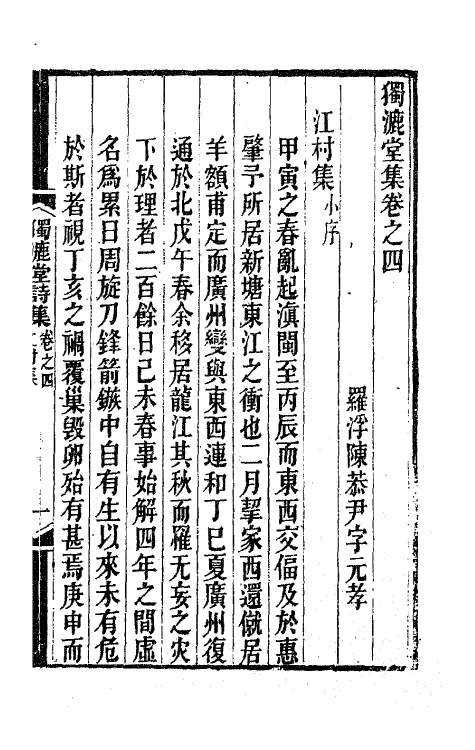 獨漉堂集卷之四
羅浮陳恭尹字元孝
江村集小序
甲寅之春亂起滇閩至丙辰而東西交偪及於惠
肇予所居新塘東江之衝也二月挈家西還僦居
羊額甫定而廣州變與東西連和丁巳夏廣州復
通於北戊午春余移居龍江其秋而罹无妄之灾
下於理者二百餘日己未春事始解四年之間虛
名爲累日周旋刀鋒箭鏃中自有生以來未有危
於斯者視丁亥之禍覆巢毀卵殆有甚焉庚申而
獨漉堂詩集 卷之四 村集 一